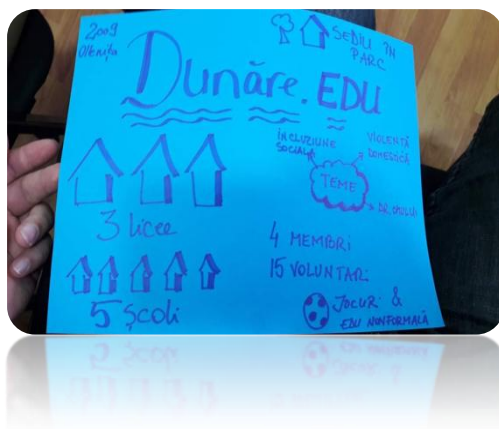 2009
Oltenița
SEDIU ÎN
PARC
Dunăre.EDU
3 licee
5 Școli
INCLUZIUNE
SOCIALĂ
VIOLENȚĂ
DOMESTICĂ
TEME
DR. OMULUI
4 MEMBRI
15 VOLUNTARI
JOCURI &
EDU NONFORMALĂ